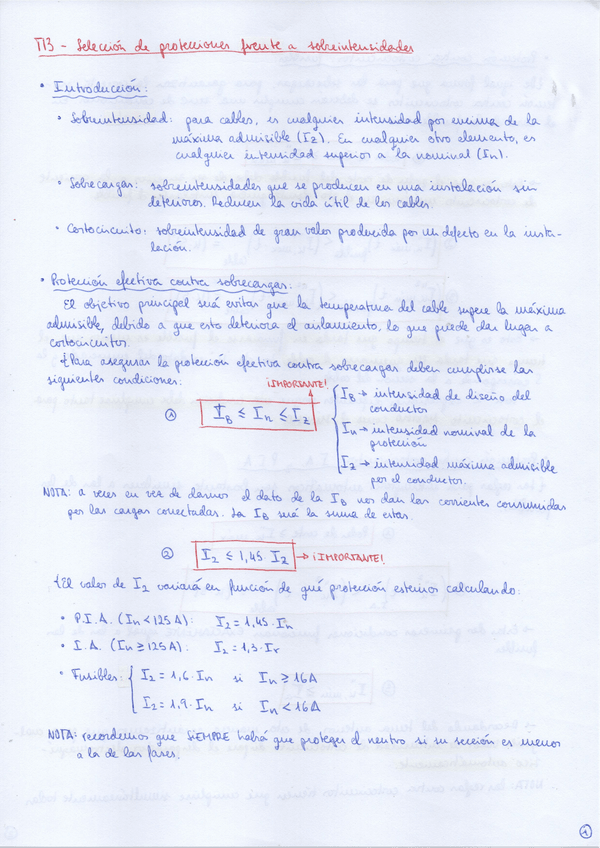 T13 - Selección de protecciones frente a sobreintensidades
• Introducción:
• Sobreintensidad: para cables, es cualquier intensidad por encima de la
máxima admisible (Iz). En cualquier otro elemento, es
cualquier intensidad superior a la nominal (In).
• Sobrecargas: sobreintensidades que se producen en una instalación sin
deterioros. Reducen la vida útil de los cables.
• Cortocircuito: sobreintensidad de gran valor producida por un defecto en la insta-
lación.
• Protección efectiva contra sobrecargas:
El objetivo principal será evitar que la temperatura del cable supere la máxima
admisible, debido a que esto deteriora el aislamiento, lo que puede dar lugar a
cortocircuitos.
Para asegurar la protección efectiva contra sobrecargas deben cumplirse las
siguientes condiciones:
¡IMPORTANTE!
① IB ≤ In ≤ Iz
IB → intensidad de diseño del
conductor
In → intensidad nominal de la
protección
Iz → intensidad máxima admisible
por el conductor.
NOTA: a veces en vez de darnos el dato de la IB nos dan las corrientes consumidas
por las cargas conectadas. La IB será la suma de estas.
② I2 ≤ 1,45 Iz → ¡IMPORTANTE!
El valor de I2 variará en función de qué protección estemos calculando:
• P.I.A. (In < 125 A): I2 = 1,45 · In
• I.A. (In ≥ 125 A): I2 = 1,3 · Ir
• Fusibles: I2 = 1,6 · In si In ≥ 16A
I2 = 1,9 · In si In < 16A
NOTA: recordemos que SIEMPRE habrá que proteger el neutro si su sección es menos
a la de las fases.
1